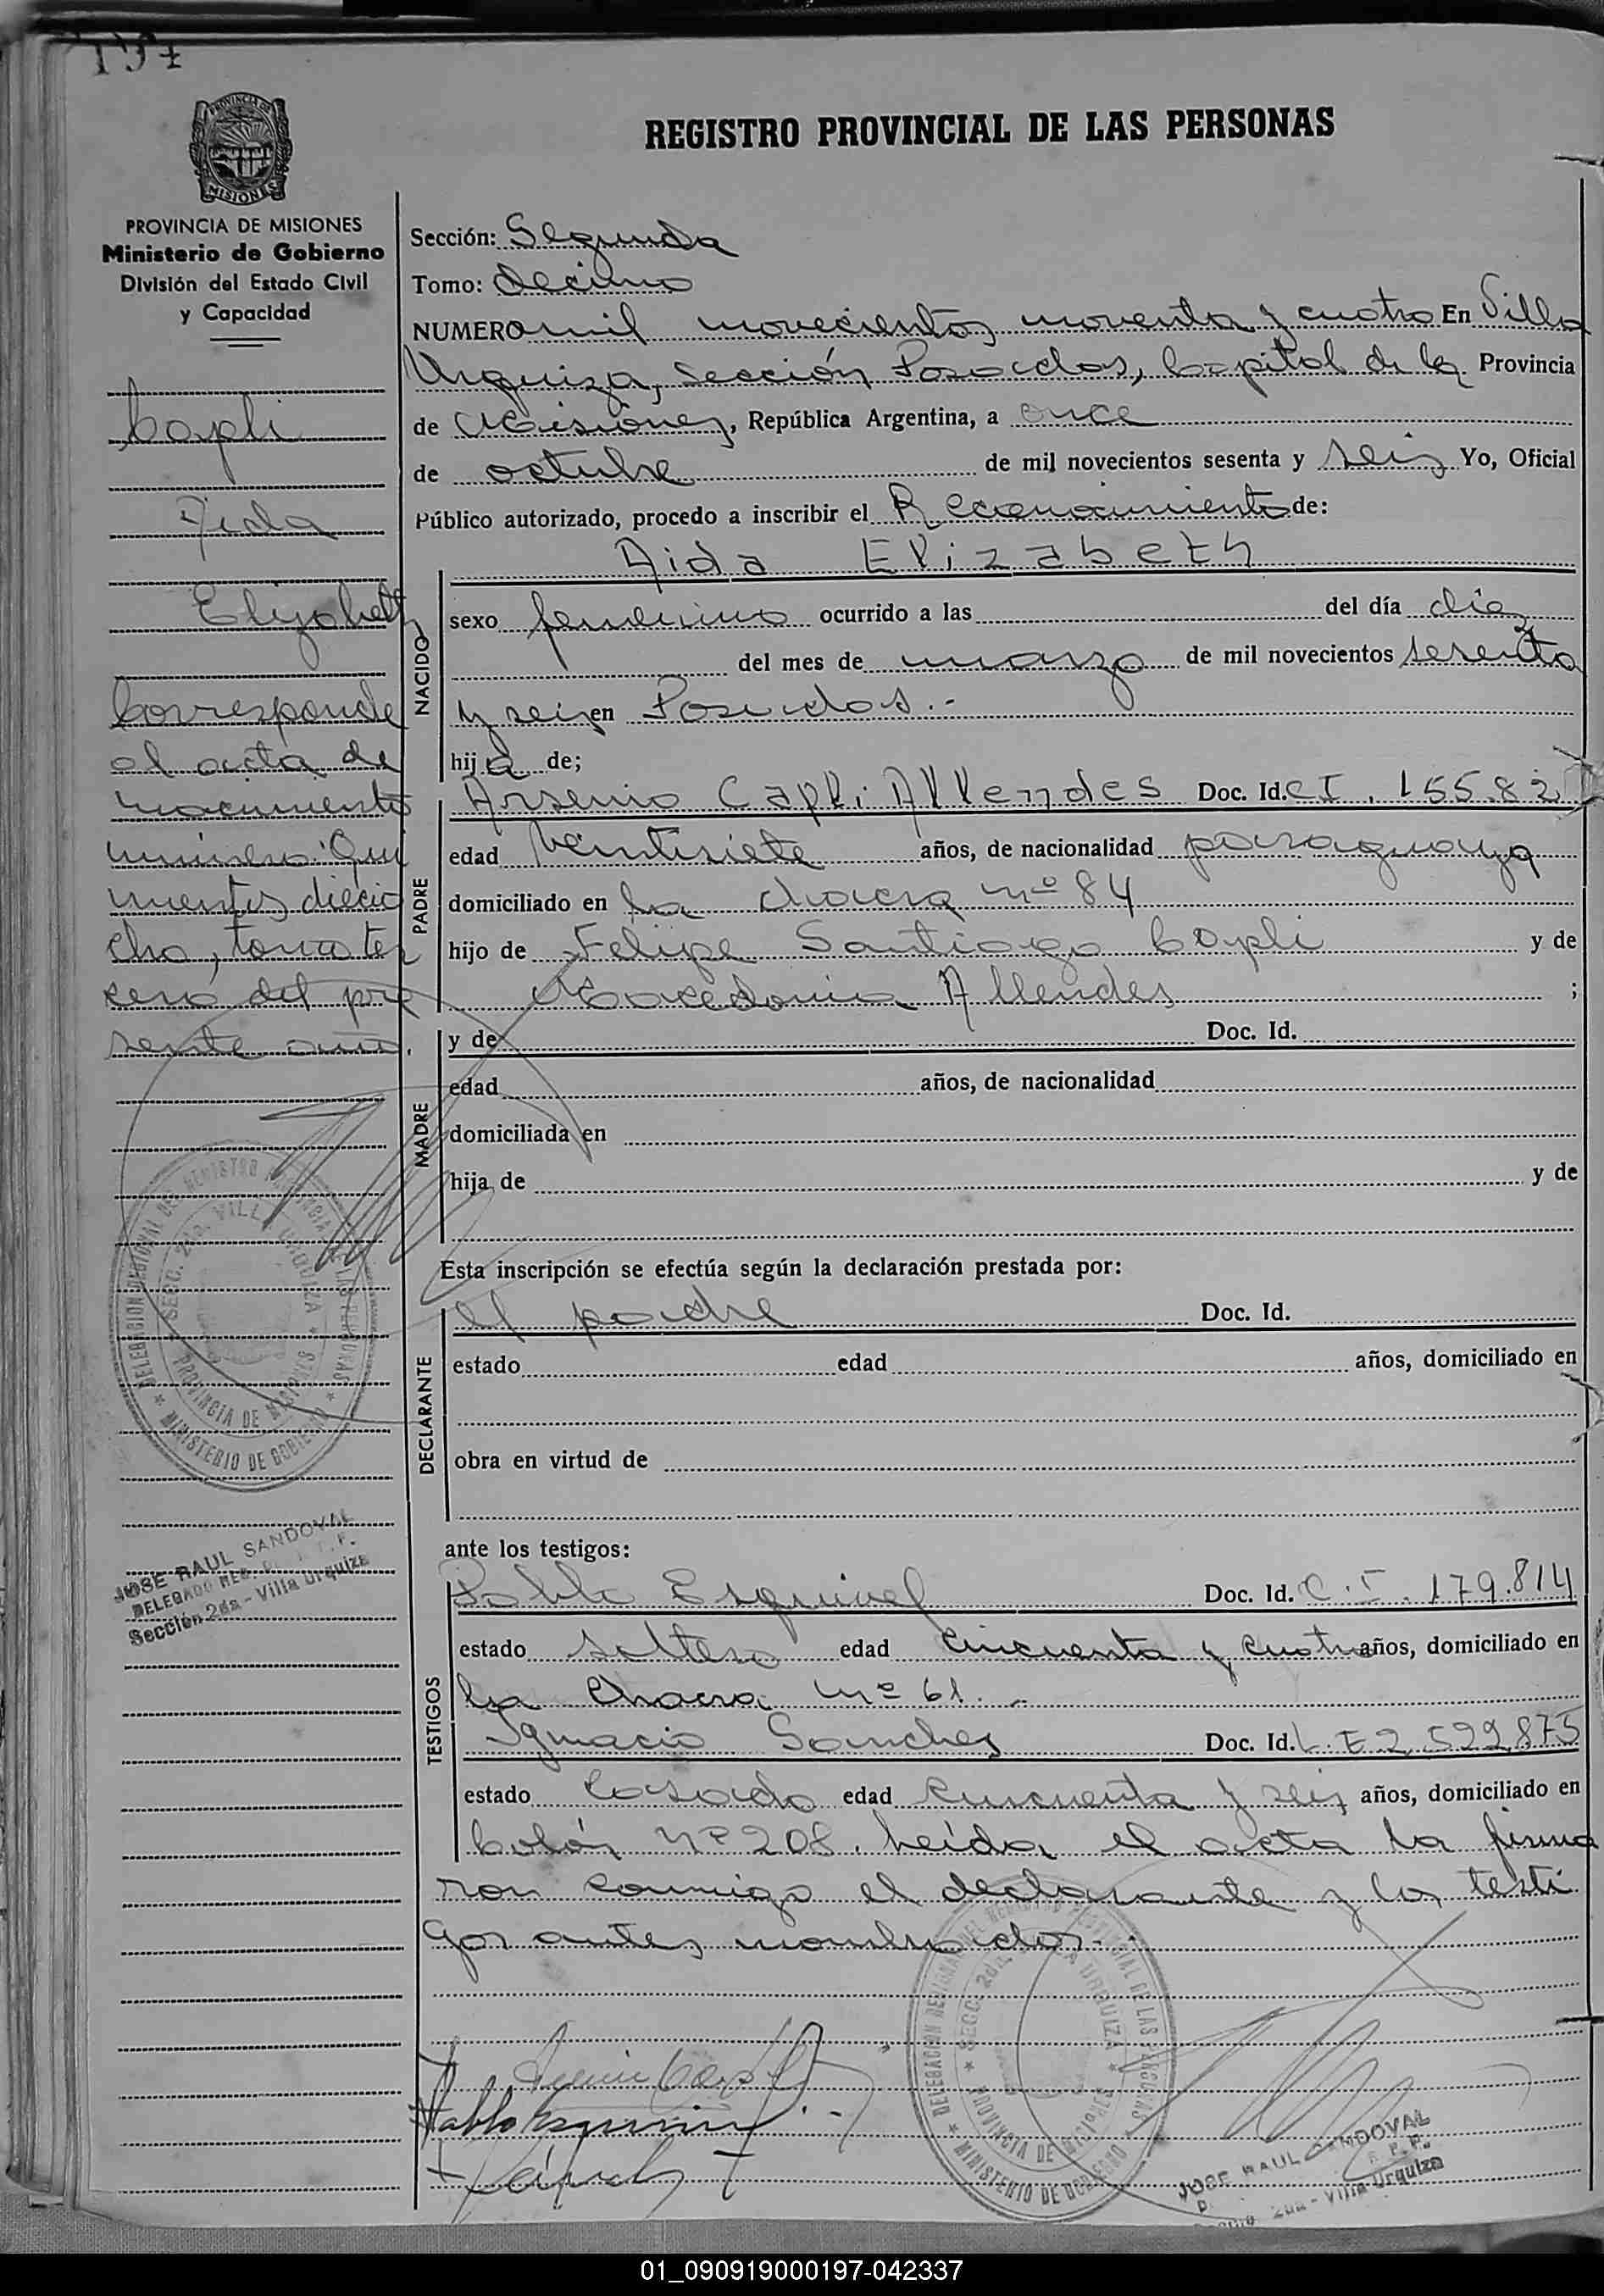 197
PROVINCIA DE MISIONES
PROVINCIA DE MISIONES
Ministerio de Gobierno
División del Estado Civil
y Capacidad
Capli
Aida
Elizabeth
Corresponde
al acta de
nacimiento
número: Qui
nientos diecio
cho, tomo ter
cero del pre
sente año.
DELEGACION REGIONAL DEL REGISTRO PROVINCIAL DE LAS PERSONAS
SECC. 2da. VILLA URQUIZA
PROVINCIA DE MISIONES
MINISTERIO DE GOBIERNO
JOSE RAUL SANDOVAL
DELEGADO REG.
Sección 2da - Villa Urquiza
REGISTRO PROVINCIAL DE LAS PERSONAS
Sección: Segunda
Tomo: decimo
NUMERO mil novecientos noventa y cuatro En Villa
Urquiza, Sección Posadas, Capital de la Provincia
de Misiones, República Argentina, a once
de octubre de mil novecientos sesenta y seis Yo, Oficial
Público autorizado, procedo a inscribir el Reconocimiento de:
Aida Elizabeth
NACIDO
sexo femenino ocurrido a las del día diez
del mes de marzo de mil novecientos sesenta
y seis en Posadas.-
hija de;
PADRE
Arsenio Capli Allendes Doc. Id. CI. 155.82
edad veintisiete años, de nacionalidad paraguaya
domiciliado en la chacra nº 84
hijo de Felipe Santiago Capli y de
Macedonia Allendes ;
MADRE
y de Doc. Id.
edad años, de nacionalidad
domiciliada en
hija de y de
Esta inscripción se efectúa según la declaración prestada por:
DECLARANTE
el padre Doc. Id.
estado edad años, domiciliado en
obra en virtud de
ante los testigos:
TESTIGOS
Pablo Esquivel Doc. Id. C.I. 179.814
estado soltero edad cincuenta y cuatro años, domiciliado en
la Chacra nº 61.-
Ignacio Sanches Doc. Id. L.E 2.522.875
estado casado edad cincuenta y seis años, domiciliado en
Colón Nº 208. Leída el acta la firma
ron conmigo el declarante y los testi
gos antes nombrados.-
DELEGACION REGIONAL DEL REGISTRO PROVINCIAL DE LAS PERSONAS
SECC. 2da. VILLA URQUIZA
PROVINCIA DE MISIONES
MINISTERIO DE GOBIERNO
Pablo Esquivel
JOSE RAUL SANDOVAL
2da - Villa Urquiza
01_090919000197-042337